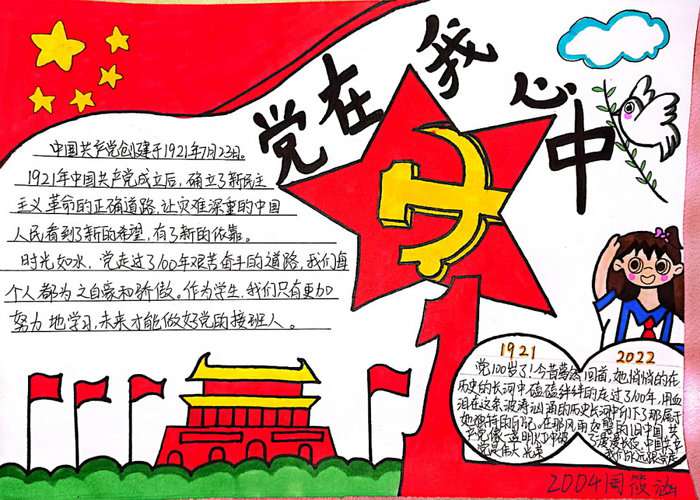 党在我心中
中国共产党创建于1921年7月23日。
1921年中国共产党成立后,确立了新民主
主义革命的正确道路,让灾难深重的中国
人民看到了新的希望,有了新的依靠。
时光如水,党走过了100年艰苦奋斗的道路,我们每
个人都为之自豪和骄傲。作为学生,我们只有更加
努力地学习,未来才能做好党的接班人。
1921 2022
党100岁了!今昔蓦然回首,她悄悄的在
历史的长河中磕磕绊绊的走过了100年,用血
泪在这条波涛汹涌的历史长河中印下了那属于
她独特的印记。在那风雨如
的旧中国,共
产党像一盏明灯
了漫漫长夜,中国
党是伟大光荣
2004周筱